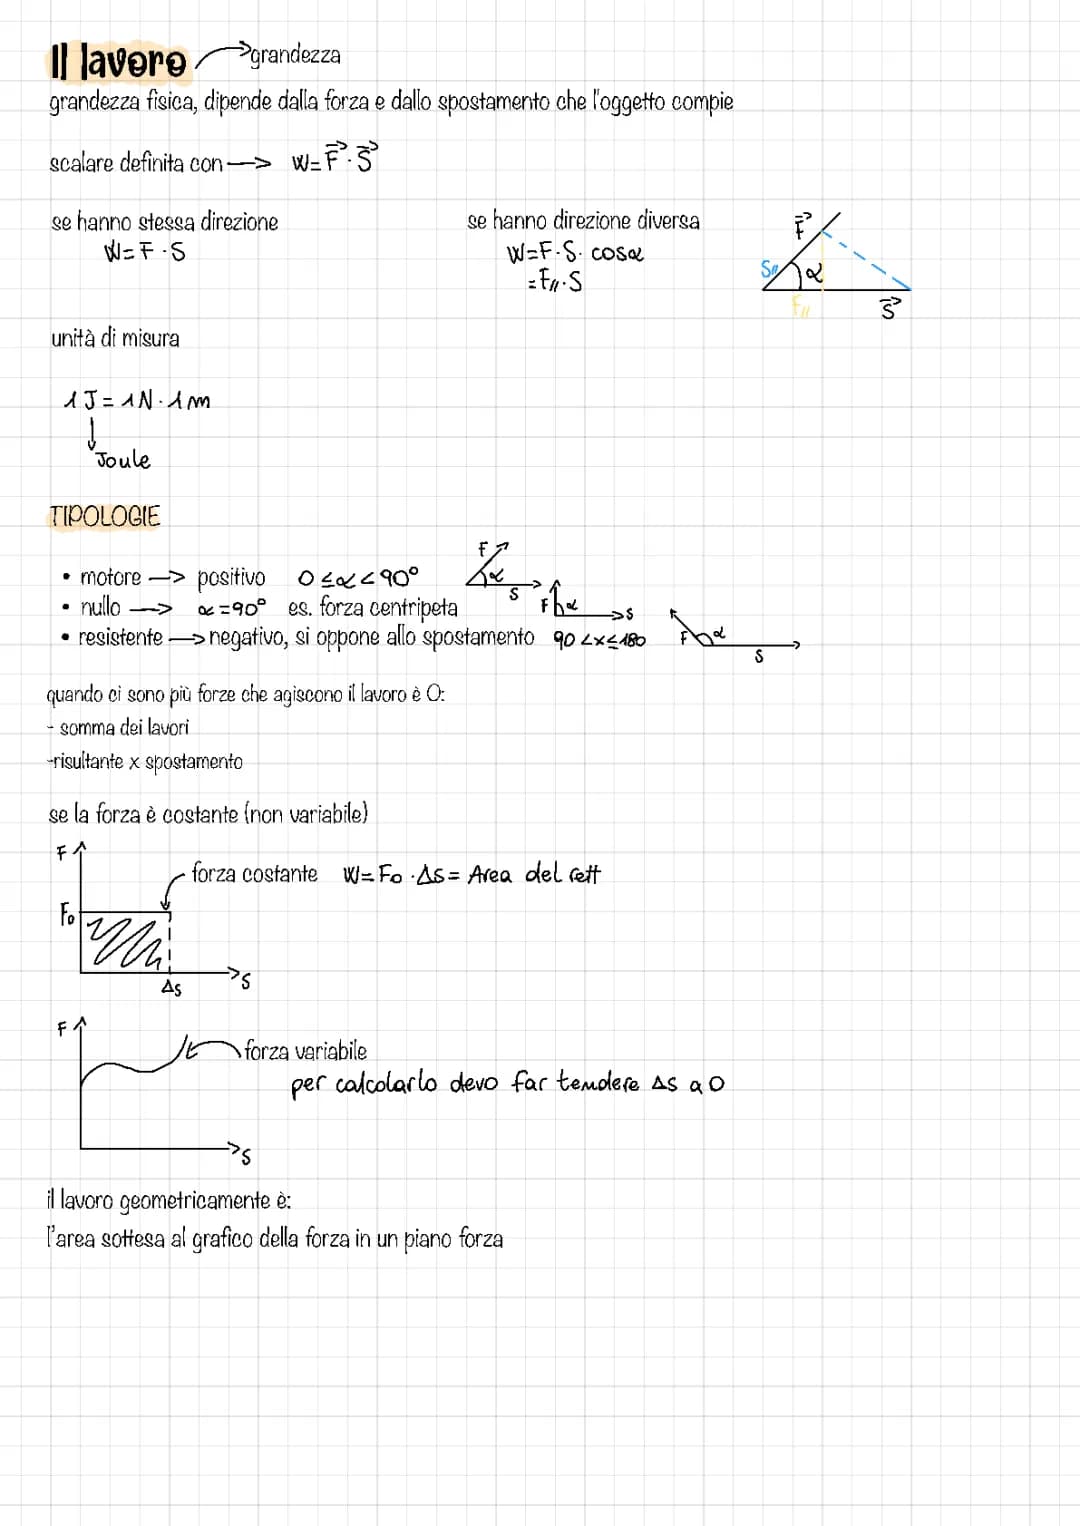 Il lavoro → grandezza
grandezza fisica, dipende dalla forza e dallo spostamento che l'oggetto compie
scalare definita con → W=F⃗·S⃗
se hanno stessa direzione
W=F·S
se hanno direzione diversa
W=F·S·cosα
=F//·S
F⃗
S//
α
F//
S⃗
unità di misura
1J=1N·1m
↓
Joule
TIPOLOGIE
• motore → positivo 0≤α<90° F α S
• nullo → α=90° es. forza centripeta F α S
• resistente → negativo, si oppone allo spostamento 90<x≤180 F α S
quando ci sono più forze che agiscono il lavoro è O:
- somma dei lavori
-risultante x spostamento
se la forza è costante (non variabile)
F
forza costante W=F₀·ΔS= Area del rett
F₀
S
ΔS
F
forza variabile
per calcolarlo devo far tendere ΔS a 0
S
il lavoro geometricamente è:
l'area sottesa al grafico della forza in un piano forza